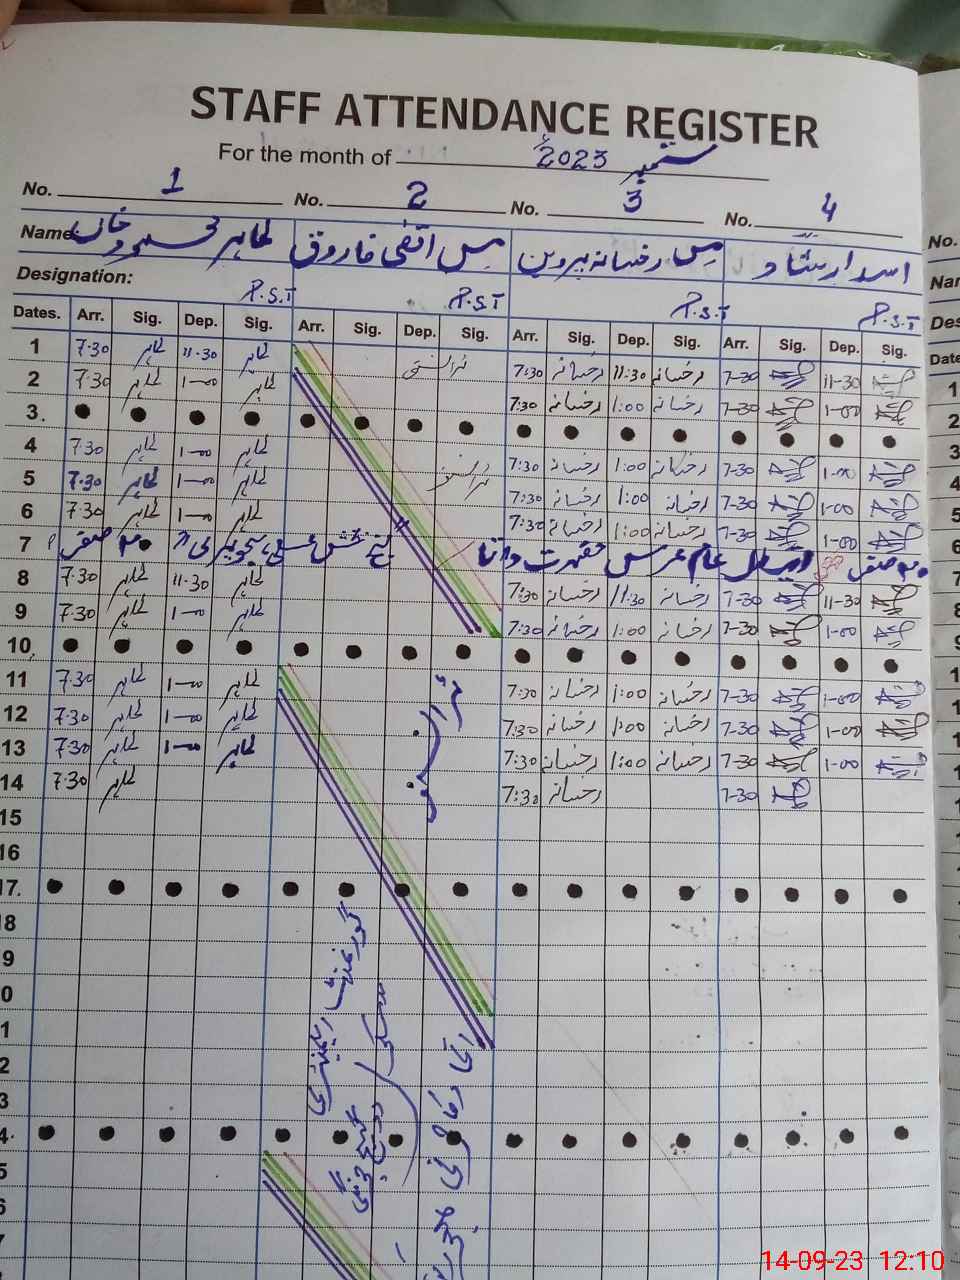 STAFF ATTENDANCE REGISTER
For the month of ستمبر 2023ء
No. 1 No. 2 No. 3 No. 4 No.
Name طاہر محمود خان مس اقصٰی فاروق مس رخسانہ پروین اسد ارشاد
Designation: P.S.T P.S.T P.S.T P.S.T
Dates. Arr. Sig. Dep. Sig. Arr. Sig. Dep. Sig. Arr. Sig. Dep. Sig. Arr. Sig. Dep. Sig.
1 7.30 طاہر 11.30 طاہر ٹرانسفر 7:30 رخسانہ 11:30 رخسانہ 7-30 11-30
2 7.30 طاہر 1-00 طاہر 7:30 رخسانہ 1:00 رخسانہ 7-30 1-00
3.
4 7.30 طاہر 1-00 طاہر 7:30 رخسانہ 1:00 رخسانہ 7-30 1-00
5 7.30 طاہر 1-00 طاہر ٹرانسفر 7:30 رخسانہ 1:00 رخسانہ 7-30 1-00
6 7.30 طاہر 1-00 طاہر 7:30 رخسانہ 1:00 رخسانہ 7-30 1-00
7 ۲۰ صفر تعطیل عام عرس حضرت داتا گنج بخش علی ہجویری ۲۰ صفر
8 7.30 طاہر 11.30 طاہر 7:30 رخسانہ 11:30 رخسانہ 7-30 11-30
9 7.30 طاہر 1-00 طاہر 7:30 رخسانہ 1:00 رخسانہ 7-30 1-00
10
11 7.30 طاہر 1-00 طاہر 7:30 رخسانہ 1:00 رخسانہ 7-30 1-00
12 7.30 طاہر 1-00 طاہر 7:30 رخسانہ 1:00 رخسانہ 7-30 1-00
13 7.30 طاہر 1-00 طاہر 7:30 رخسانہ 1:00 رخسانہ 7-30 1-00
14 7.30 طاہر 7:30 رخسانہ 7-30
ٹرانسفر
15
16
17.
18
9
0
1
2
3
4.
5
6
7
گورنمنٹ
14-09-23 12:10